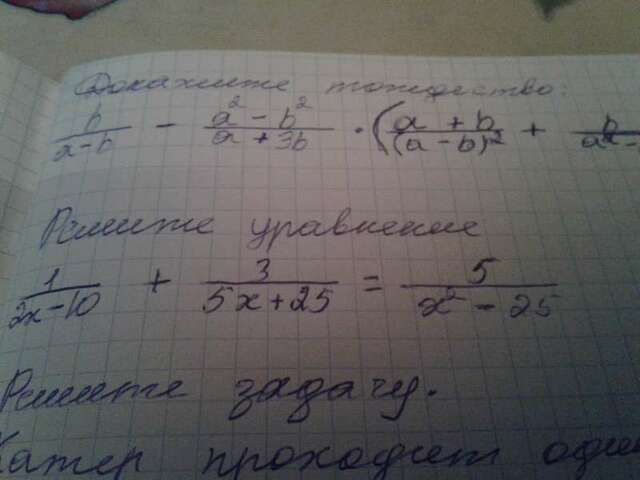 Докажите тождество:
b/(a-b) - (a² - b²)/(a + 3b) · ((a + b)/(a - b)² + b/(a² -
Решите уравнение
1/(2x-10) + 3/(5x+25) = 5/(x² - 25)
Решите задачу.
Катер проходит